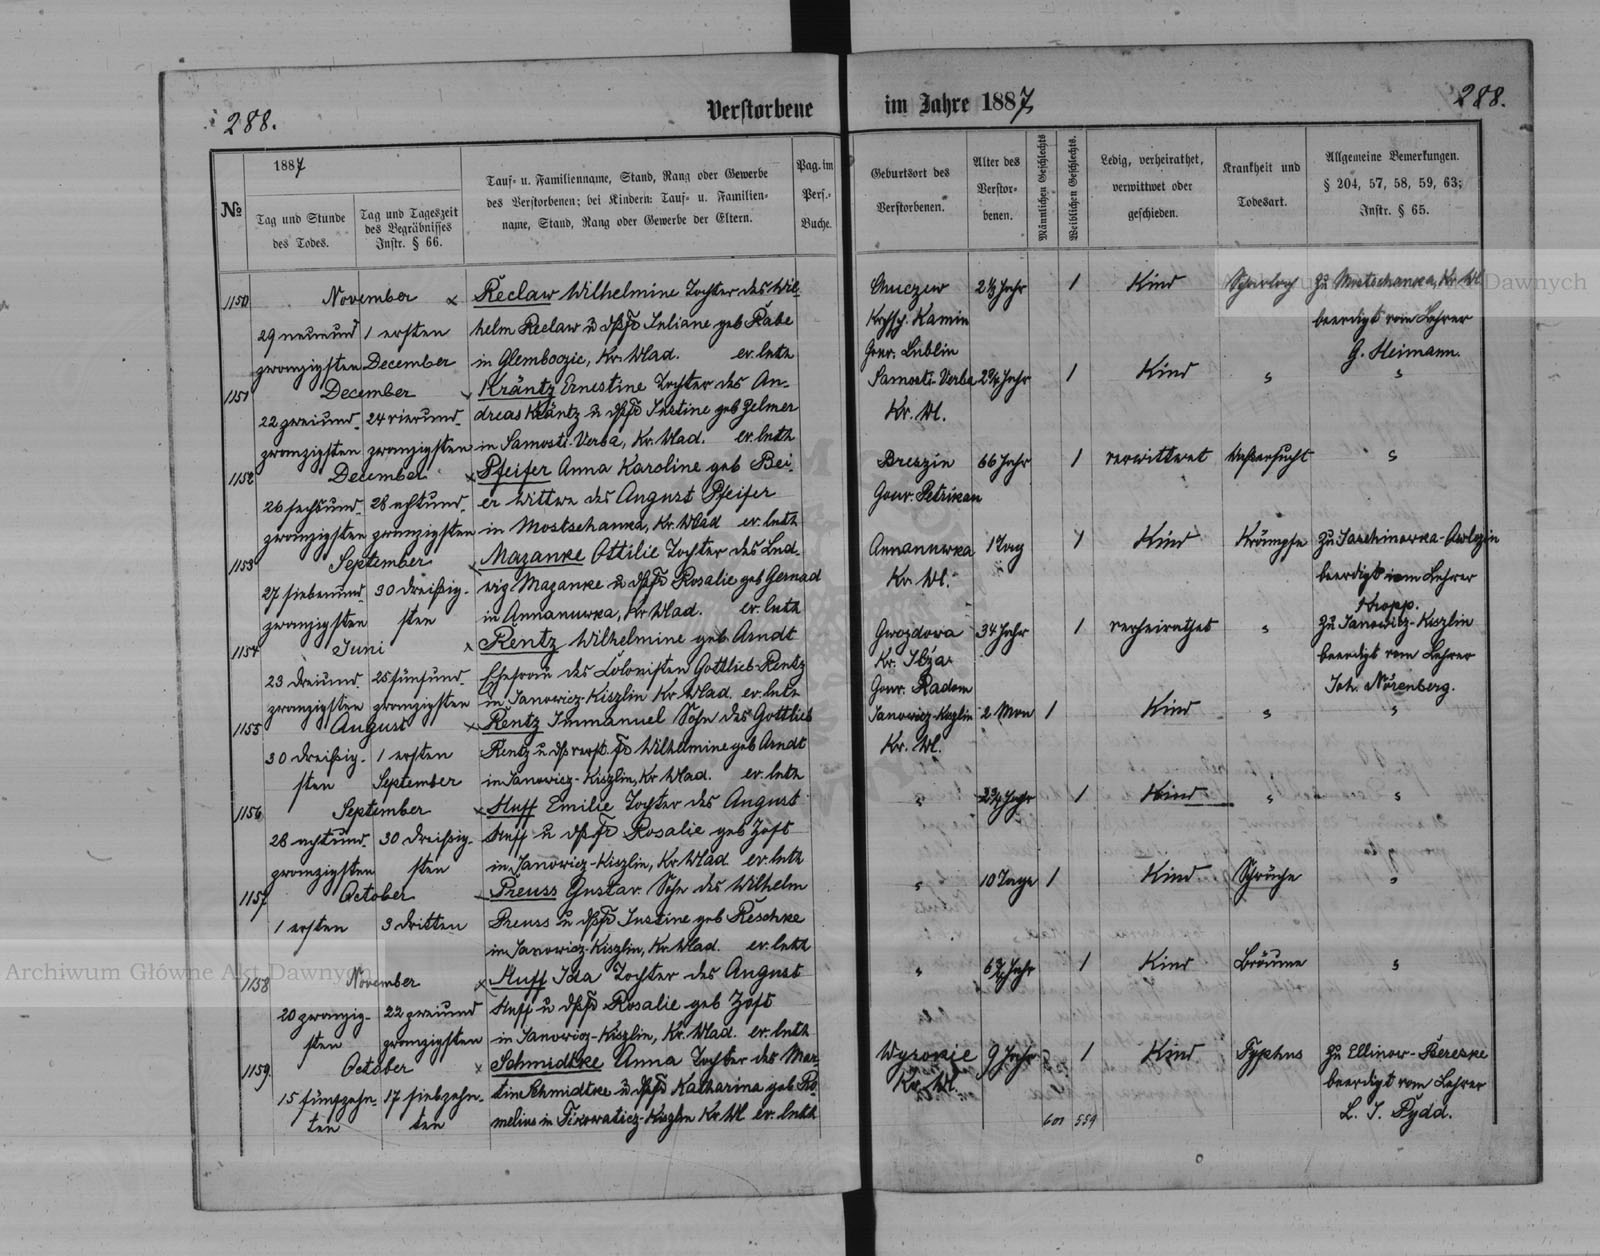 288.
Verstorbene im Jahre 1887
288.
№
1887
Tag und Stunde
des Todes.
Tag und Tageszeit
des Begräbnisses
Instr. § 66.
Tauf- u. Familienname, Stand, Rang oder Gewerbe
des Verstorbenen; bei Kindern: Tauf- u. Familien-
name, Stand, Rang oder Gewerbe der Eltern.
Pag. im
Pers.-
Buche.
Geburtsort des
Verstorbenen.
Alter des
Verstor-
benen.
Männlichen Geschlechts
Weiblichen Geschlechts.
Ledig, verheirathet,
verwittwet oder
geschieden.
Krankheit und
Todesart.
Allgemeine Bemerkungen.
§ 204, 57, 58, 59, 63;
Instr. § 65.
1150 November × Reclaw Wilhelmine Tochter des Wil-
29 neunund 1 ersten helm Reclaw u dßß Fr Juliane geb Rabe
zwanzigsten December in Glemboozic, Kr. Wlad. ev. luth
1151 December × Kräntz Ernestine Tochter des An-
22 zweiund- 24 vierund- dreas Kräntz u dßß Fr Justine geb Zelmer
zwanzigsten zwanzigsten in Samosti-Verba, Kr. Wlad. ev. luth
1152 December × Pfeifer Anna Karoline geb Bei-
26 sechsund- 28 achtund- er Wittwe des August Pfeifer
zwanzigsten zwanzigsten in Mostschanka, Kr. Wlad ev. luth
1153 September × Mazanke Ottilie Tochter des Lud-
27 siebenund- 30 dreißig- wig Mazanke u dßß Fr Rosalie geb Gernad
zwanzigsten sten in Annanuwka, Kr Wlad. ev. luth
1154 Juni × Rentz Wilhelmine geb Arndt
23 dreiund- 25 fünfund- Ehefrau des Colonisten Gottlieb Rentz
zwanzigsten zwanzigsten in Janowicz-Kiszlin Kr. Wlad. ev. luth
1155 August × Rentz Immanuel Sohn des Gottlieb
30 dreißig- 1 ersten Rentz u dß verst. Fr Wilhelmine geb Arndt
sten September in Janowicz-Kiszlin, Kr Wlad. ev. luth
1156 September × Huff Emilie Tochter des August
28 achtund- 30 dreißig- Huff u dßß Fr Rosalie geb Zoft
zwanzigsten sten in Janowicz-Kiszlin, Kr. Wlad. ev. luth
1157 October Preuss Gustav Sohn des Wilhelm
1 ersten 3 dritten Preuss u dßß Fr Justine geb Reschke
in Janowicz-Kiszlin, Kr. Wlad. ev. luth
1158 November × Huff Ida Tochter des August
20 zwanzig- 22 zweiund Huff u dßß Fr Rosalie geb Zoft
sten zwanzigsten in Janowicz-Kiszlin, Kr. Wlad. ev. luth
1159 October × Schmidtke Anna Tochter des Mar-
15 fünfzehn- 17 siebzehn- tin Schmidtke u dßß Fr Katharina geb Ro-
ten ten melius in Kiszlin Kr. Wl ev. luth
2⅓ Jahr 1 Kind Scharlach Zu Mostschanka, Kr. Wl
Krchsp. Kamin beerdigt vom Lehrer
Gouv. Lublin G. Heimann.
Samosti-Verba 2¾ Jahr 1 Kind " "
Kr. Wl.
Breszin 66 Jahr 1 verwittwet Waßersucht "
Gouv. Petrikau
Annanuwka 1 Tag 1 Kind Krämpfe Zu
Kr. Wl. beerdigt vom Lehrer
Gwozdowa 34 Jahr 1 verheirathet " Zu Janowicz-Kiszlin
Kr. Ilza beerdigt vom Lehrer
Gouv. Radom Joh. Nörenberg.
Janowicz-Kiszlin 2 Mon 1 Kind " "
Kr. Wl.
" 2¾ Jahr 1 Kind " "
" 10 Tage 1 Kind Schräche "
" 6¾ Jahr 1 Kind Bräune "
Wyzokie 9 Jahr 1 Kind Typhus Zu Ellinow-Bereske
Kr. Wl. beerdigt vom Lehrer
L. J. Fydd.
601 559
Archiwum Główne Akt Dawnych
Archiwum Główne Akt Dawnych